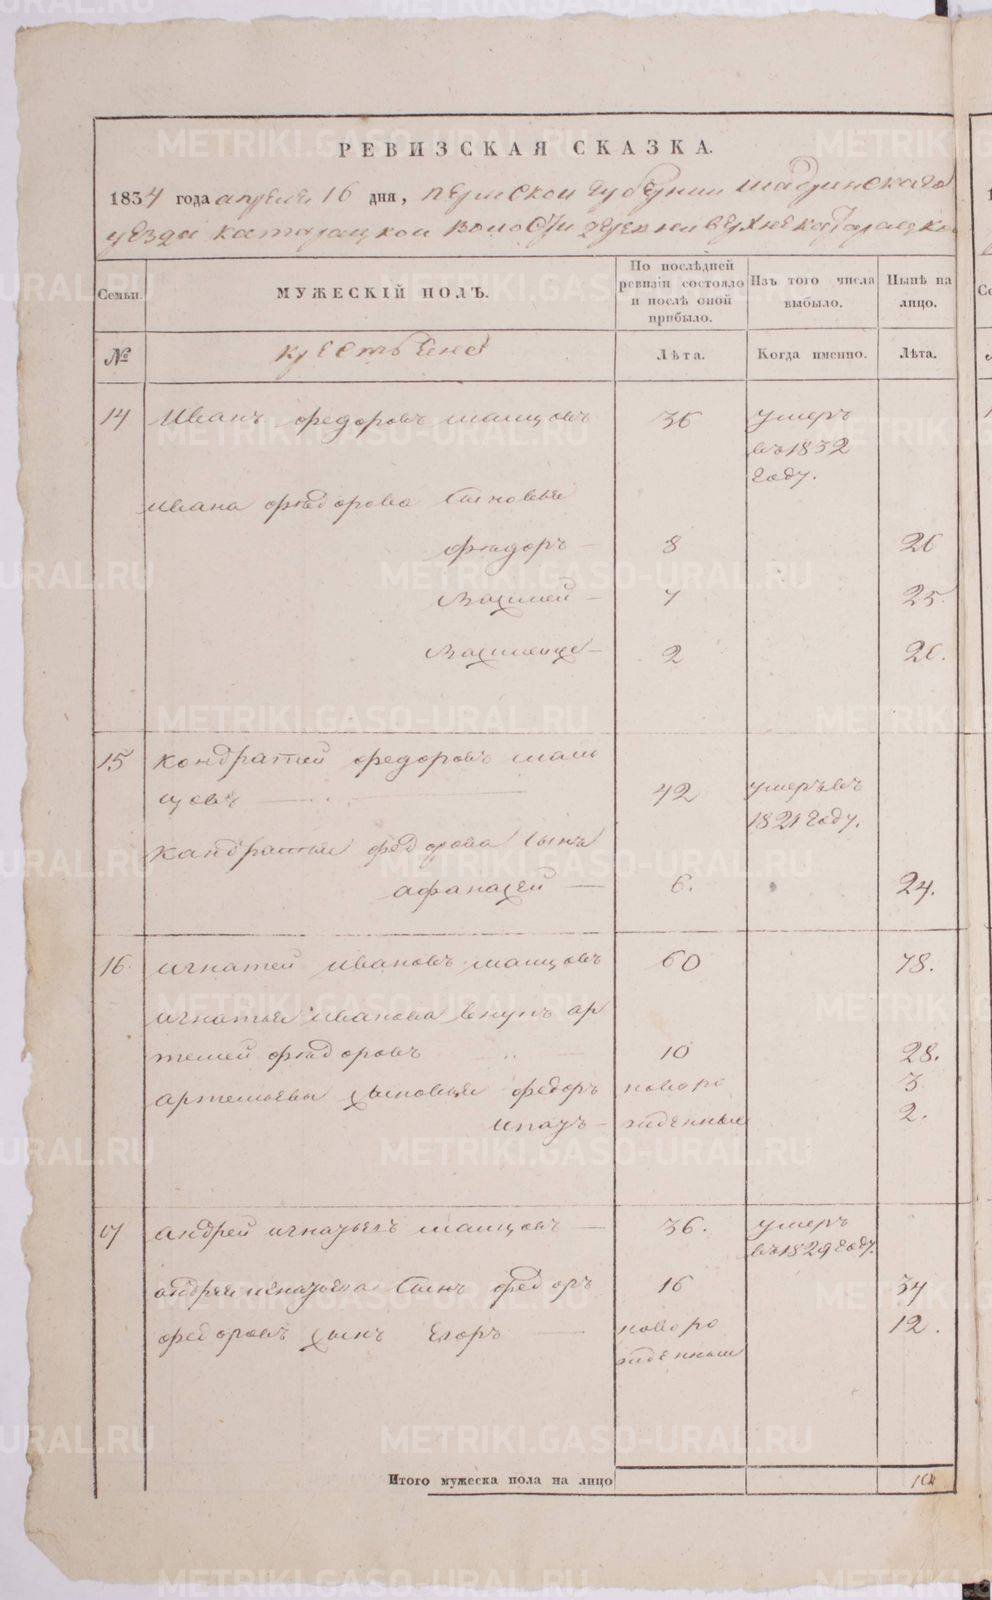 РЕВИЗСКАЯ СКАЗКА.
1834 года апреля 16 дня, пермской губернии шадринскаго
уезда катарацкой волости деревни верхнекатарацко
Семьи. МУЖЕСКІЙ ПОЛЪ. По послѣдней ревизіи состояло и послѣ оной прибыло. Изъ того числа выбыло. Нынѣ на лицо.
№ крестьяне Лѣта. Когда именно. Лѣта.
14 Иванъ федоровъ шамцовъ 36 умеръ
въ 1832
году.
ивана фѣдорова сыновья
фѣдоръ 8 26
Василей 7 25.
2 20.
15 кондратей федоровъ шам
цовъ 42 умеръ въ
1821 году.
кандратья федорова сынъ
афанасей 6. 24.
16. игнатей ивановъ шамцовъ 60 78.
игнатья иванова внукъ ар
темей фѣдоровъ 10 28.
артемьевы сыновья федоръ новоро 3
жденные 2.
17 андрей игнатьевъ шамцовъ 36. умеръ
въ 1829 году.
андрея игнатьева сынъ федоръ 16 34
федоровъ сынъ егоръ новоро 12.
жденный
Итого мужеска пола на лицо 10
METRIKI.GASO-URAL.RU